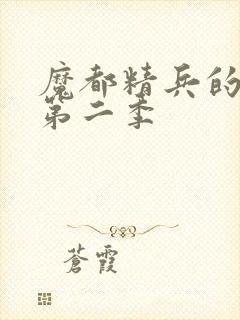 魔都精兵的
第二季
蒼霞